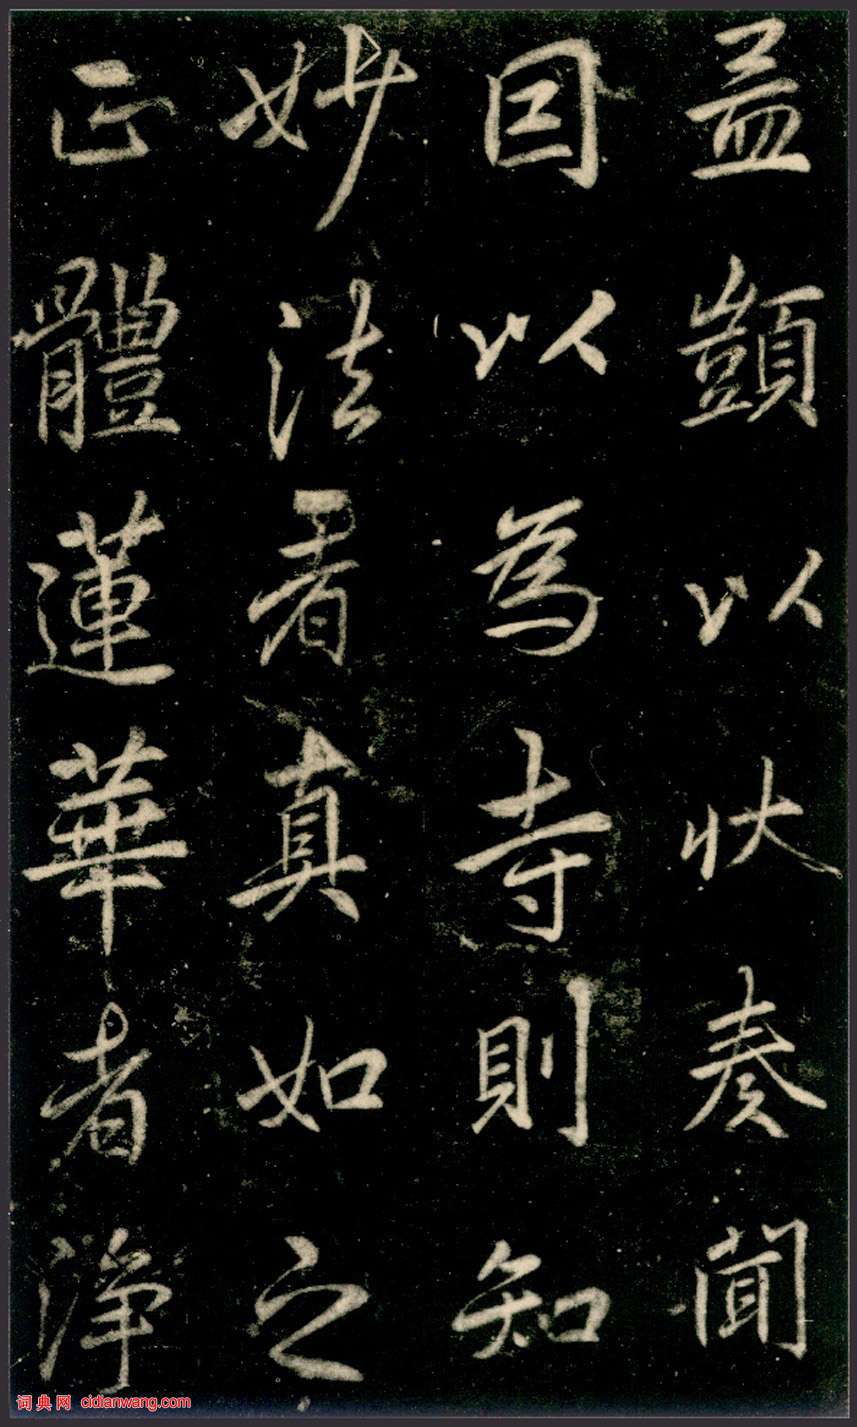 孟顗以狀奏聞
因以為寺則知
妙法者真如之
正體蓮華者淨
词典网 cidianwang.com